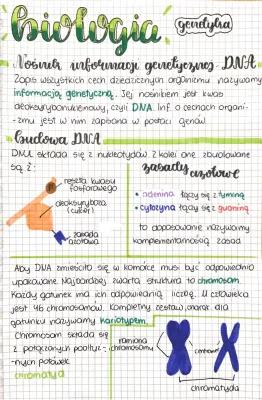 biologia
genetyka
Nośnik informacji genetycznej - DNA
Zapis wszystkich cech dziedzicznych organizmu nazywamy
informacją genetyczną. Jej nośnikiem jest kwas
deoksyrybonukleinowy, czyli DNA. Inf. o cechach organi-
-zmu jest w nim zapisana w postaci genów.
budowa DNA
DNA składa się z nukleotydów z kolei one zbudowane
są z:
reszta kwasu
fosforowego
deoksyryboza
(cukier)
zasada
azotowa
zasady
azotowe
• adenina łączy się z tyminą
• cytozyna łączy się z guaniną
to dopasowanie nazywamy
komplementarnością zasad
Aby DNA zmieściło się w komórce musi być odpowiednio
upakowane. Najbardziej zwarta struktura to chromosom.
Każdy gatunek ma ich odpowiednią liczbę. U człowieka
jest 46 chromosomów. Kompletny zestaw, dla
gatunku nazywamy kariotypem.
Chromosom składa się
z połączonych podłuż-
-nych połówek
chromatyd
ramiona
chromosomu
centromer
chromatyda